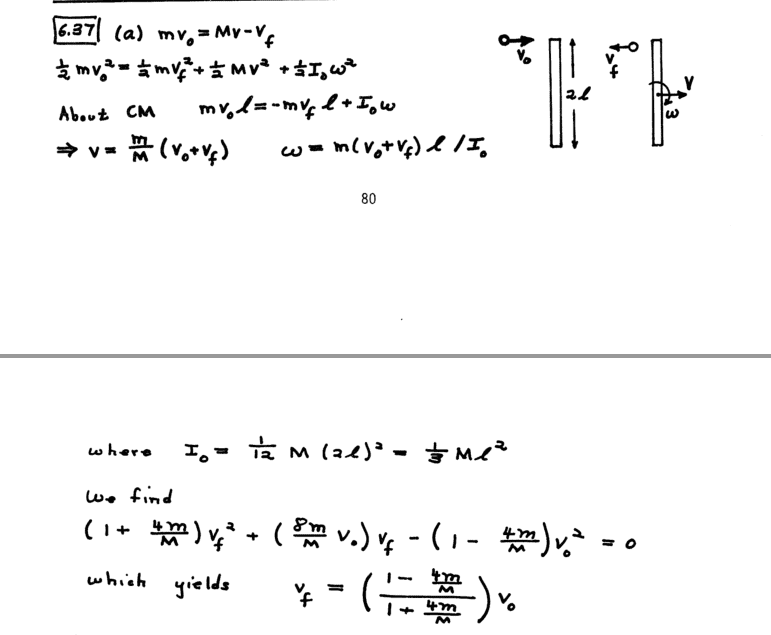 6.37 (a) mv₀ = Mv - v_f
½ mv₀² = ½ mv_f² + ½ Mv² + ½ I₀ω²
About CM mv₀l = -mv_f l + I₀ω
⇒ v = m/M (v₀+v_f) ω = m(v₀+v_f) l / I₀
v₀
2l
v_f
v
ω
80
where I₀ = 1/12 M (2l)² = 1/3 Ml²
we find
(1 + 4m/M) v_f² + (8m/M v₀) v_f - (1 - 4m/M) v₀² = 0
which yields v_f = ((1 - 4m/M)/(1 + 4m/M)) v₀